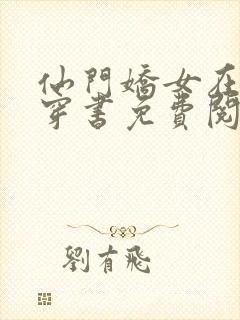 仙門嬌女在
穿書免費閱
劉有飛